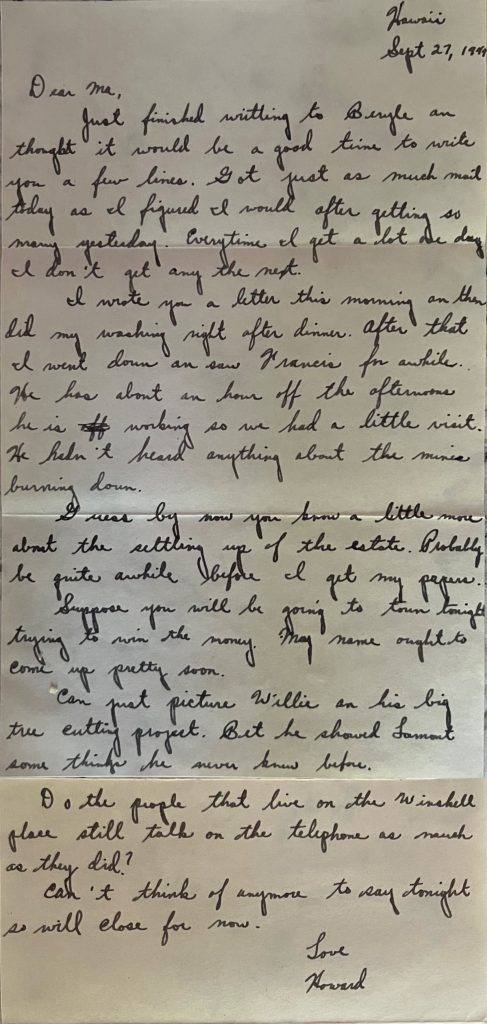 Hawaii
Sept 27, 194
Dear Ma,
Just finished writting to Beryle an
thought it would be a good time to write
you a few lines. Got just as much mail
today as I figured I would after getting so
many yesterday. Everytime I get a lot one day
I don't get any the next.
I wrote you a letter this morning an then
did my washing right after dinner. After that
I went down an saw Francis for awhile.
He has about an hour off the afternoons
he is working so we had a little visit.
He hadn't heard anything about the mines
burning down.
Guess by now you know a little more
about the settling up of the estate. Probably
be quite awhile before I get my papers.
Suppose you will be going to town tonight
trying to win the money. May name ought to
come up pretty soon.
Can just picture Willie an his big
tree cutting project. Bet he showed Lamont
some things he never knew before.
Do the people that live on the Winshell
place still talk on the telephone as much
as they did?
Can't think of anymore to say tonight
so will close for now.
Love
Howard